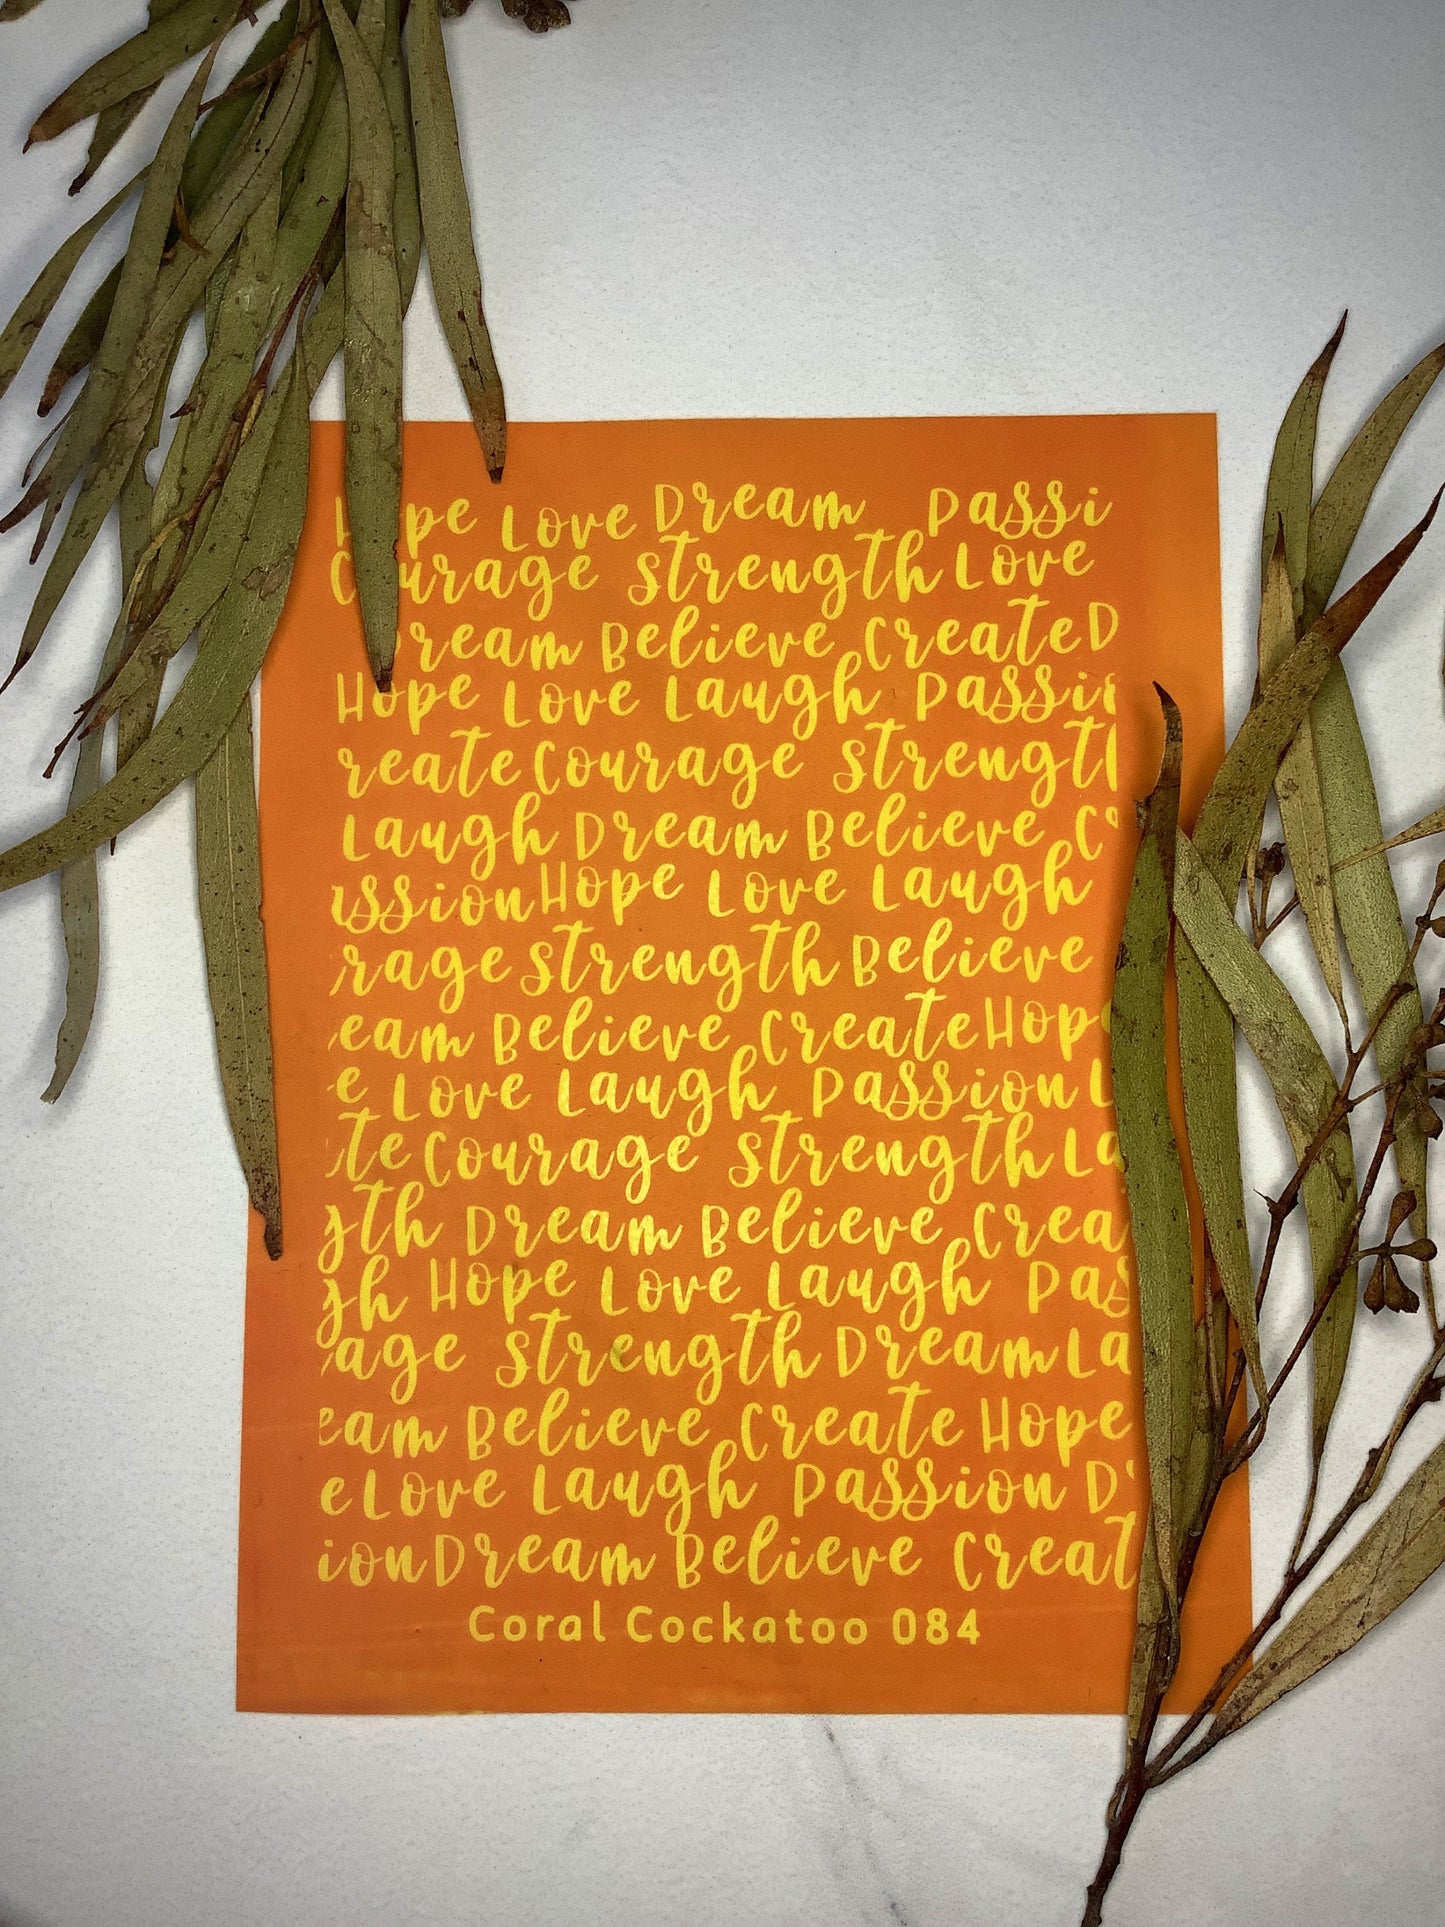 Hope Love Dream Passi
Courage Strength Love
Dream Believe Create D
Hope Love Laugh Passio
reate Courage Strength
Laugh Dream Believe C
ssion Hope Love Laugh
rage Strength Believe
eam Believe Create Hope
e Love Laugh Passion L
te Courage Strength La
gth Dream Believe Crea
gh Hope Love Laugh Pas
age Strength Dream La
eam Believe Create Hope
e Love Laugh Passion D
ion Dream Believe Creat
Coral Cockatoo 084